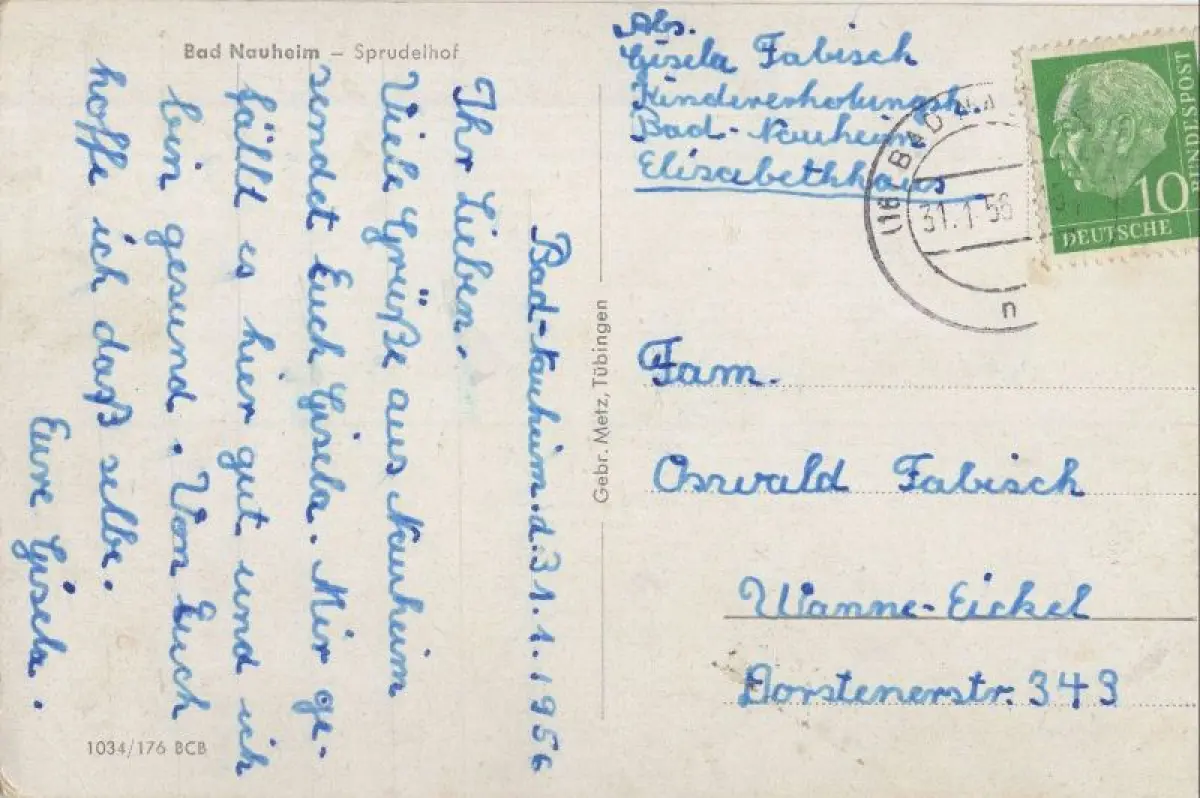 Bad Nauheim – Sprudelhof
Bad-Nauheim.d.31.1.1956
Ihr Lieben.
Viele Grüße aus Nauheim
sendet Euch Gisela. Mir ge-
fällt es hier gut und ich
bin gesund. Von Euch
hoffe ich daß selbe.
Eure Gisela.
1034/176 BCB
Gebr. Metz, Tübingen
Abs.
Gisela Fabisch
Kindererholungsh.
Bad-Nauheim
Elisabethhaus
(16) BAD
31.1.56
n
10
DEUTSCHE
BUNDESPOST
Fam.
Oswald Fabisch
Wanne-Eickel
Dorstenerstr. 343